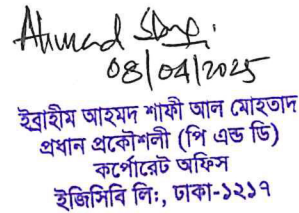 Ahmad
08/04/2025
ইব্রাহীম আহমদ শাফী আল মোহতাদ
প্রধান প্রকৌশলী (পি এন্ড ডি)
কর্পোরেট অফিস
ইজিসিবি লি:, ঢাকা-১২১৭